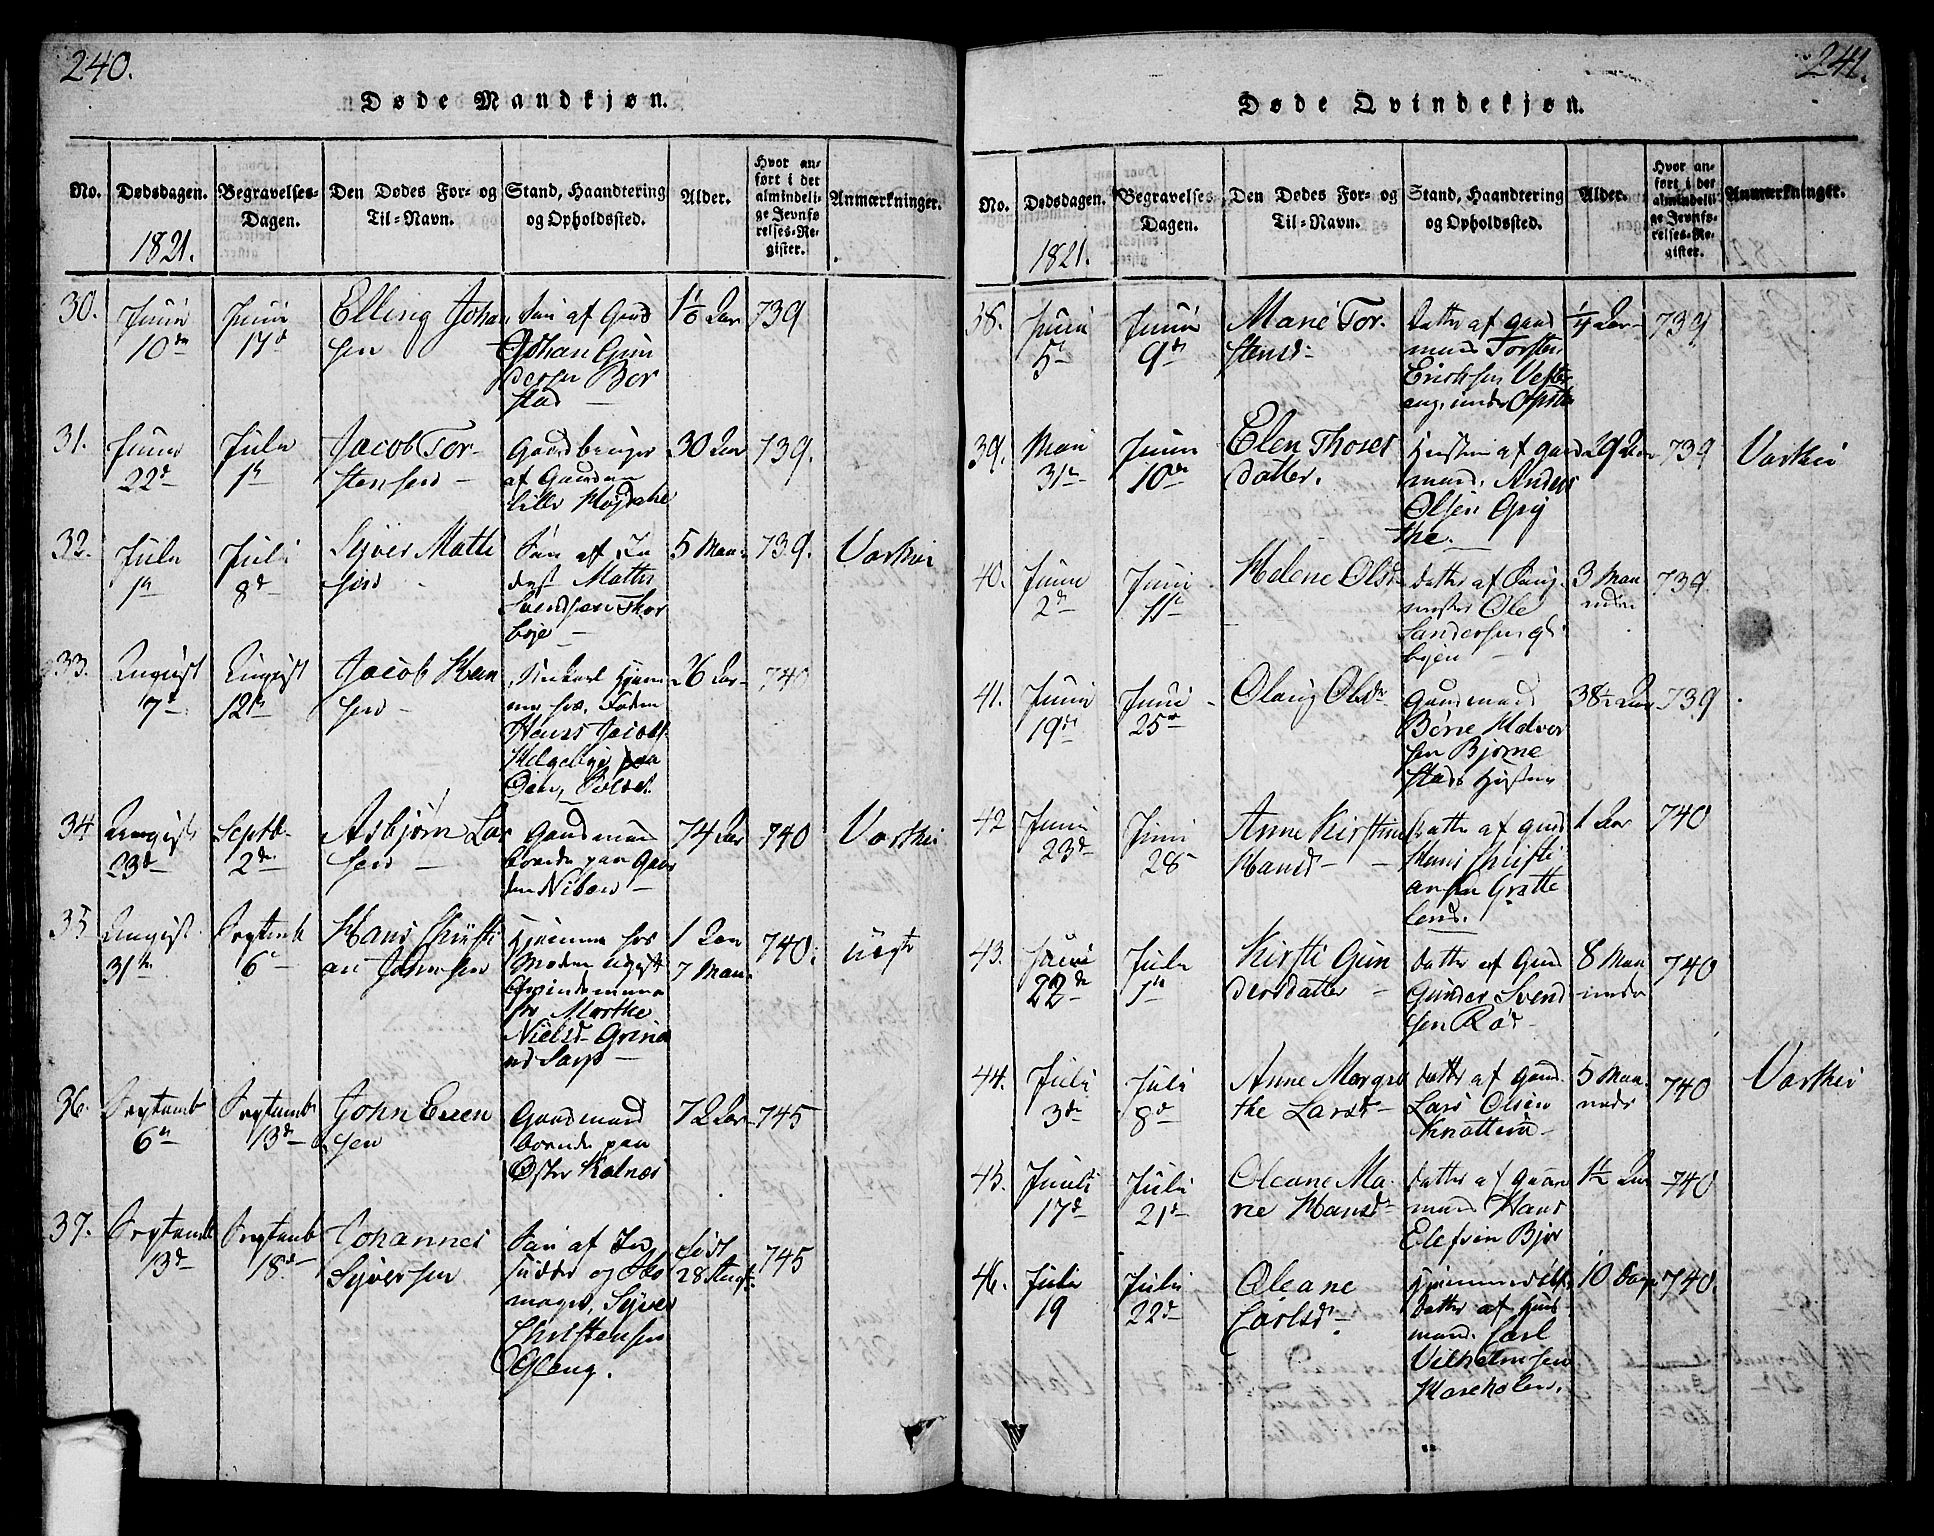 240.
Døde Mandkjøn.
No.
Dødsdagen.
1821.
Begravelses-
Dagen.
Den Dødes For- og
Til-Navn.
Stand, Haandtering
og Opholdssted.
Alder.
Hvor an-
ført i det
almindeli-
ge Jevnfø
relses-Re-
gister.
Anmærkninger.
30.
Junii
10de
Junii
17d
Elling Johan
sen
Søn af Gaard
Johan Gun
dersen Bor
stad
739
31.
Junii
22d
Julii
1ste
Jacob Tor-
stensen
af Gaarden
Lille
30 Aar
739.
32.
Julii
1ste
Julii
8d
Syver Matte
sen
Søn af In
derst Mattis
Svendsen Thor
bye
5 Maan.
739.
Varthei
33.
August
7d
August
12te
Jacob Han
sen
hos Faderen
Hans Jacobs.
Helgebye paa
26 Aar
740
34
August
23d
Septb.
2de
Asbjørn Lar
sen
Gaardmand
boende paa Gaar
den
74 Aar
740
Varthei
35
August
31te
Septemb
6te
Hans Christi
an Jonnesen
hjemme hos
Moderen
Marthe
Nielsd. Grina
ved Sarp
1 Aar
7 Maan.
740.
uægte
36.
Septemb
6te
Septemb
13de
John Even
sen
Gaardmand
boende paa
Østre Kalnæs
72 Aar
745
37.
Septemb
13d
Septemb
18d
Johannes
Syversen
Søn af In
sidder og Sko
mager, Syver
Christensen
Gleng.
28 Aug.
745
241.
Døde Qvindekjøn.
No.
Dødsdagen.
1821.
Begravelses
Dagen.
Den Dødes For- og
Til-Navn.
Stand, Haandtering
og Opholdssted.
Alder.
Hvor an-
ført i det
almindeli
ge Jevnfø-
relses-Re-
gister.
Anmærkninger.
38.
Junii
5te
Junii
9d
Marie Tor-
stensd.
Datter af Gaard
mand Torsten
Eriksen Vester
eng, under
1/4 Aar
739
39.
Maii
31te
Junii
10de
Elen Thores
datter.
Hustru af Gaard
mand, Anders
Olsen
29 Aar
739
Varthei
40.
Junii
2d
Junii
11te
Helene Olsd.
Datter af
Ole
Sandersen
byen
3 Maa
neder
739.
41.
Junii
19d
Junii
25te
Olaug Olsdr
Gaardmand
Børre Halvor
sen Bjørne
stads Hustrue
38½ Aar
739
42
Junii
23d
Junii
28
Anne Kirstine
Hansd.
Datter af Gaard
Hans Christi
ansen Grotte
lend.
1 Aar
740
43.
Junii
22de
Julii
1ste
Kirsti Gun
dersdatter
Datter af Gaard
Gunder Svend
sen Rød
8 Maa
neder
740
44.
Julii
3de
Julii
8d
Anne Margre
the Larsd.
Datter af Gaard
Lars Olsen
Knatterød
5 Maa
neder
740
Varthei
45.
Julii
17d
Julii
21d
Oleane Ma-
rie Hansd.
Datter af Gaard
mand Hans
Elefsen Bjør
1½ Aar
740
46.
Julii
19
Julii
22d
Oleane
Carlsd.
Datter af Huus
mand. Carl
Vilhelmsen
Hareholen.
10 Dage
740.